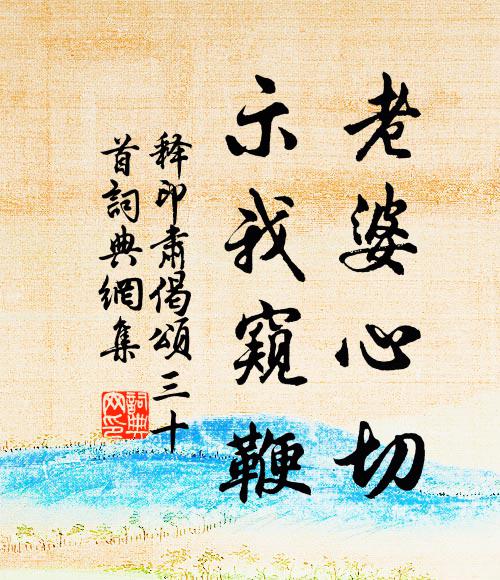 老婆心切
示我窺鞭
释印肃偈頌三十
首詞典網集
詞典网印